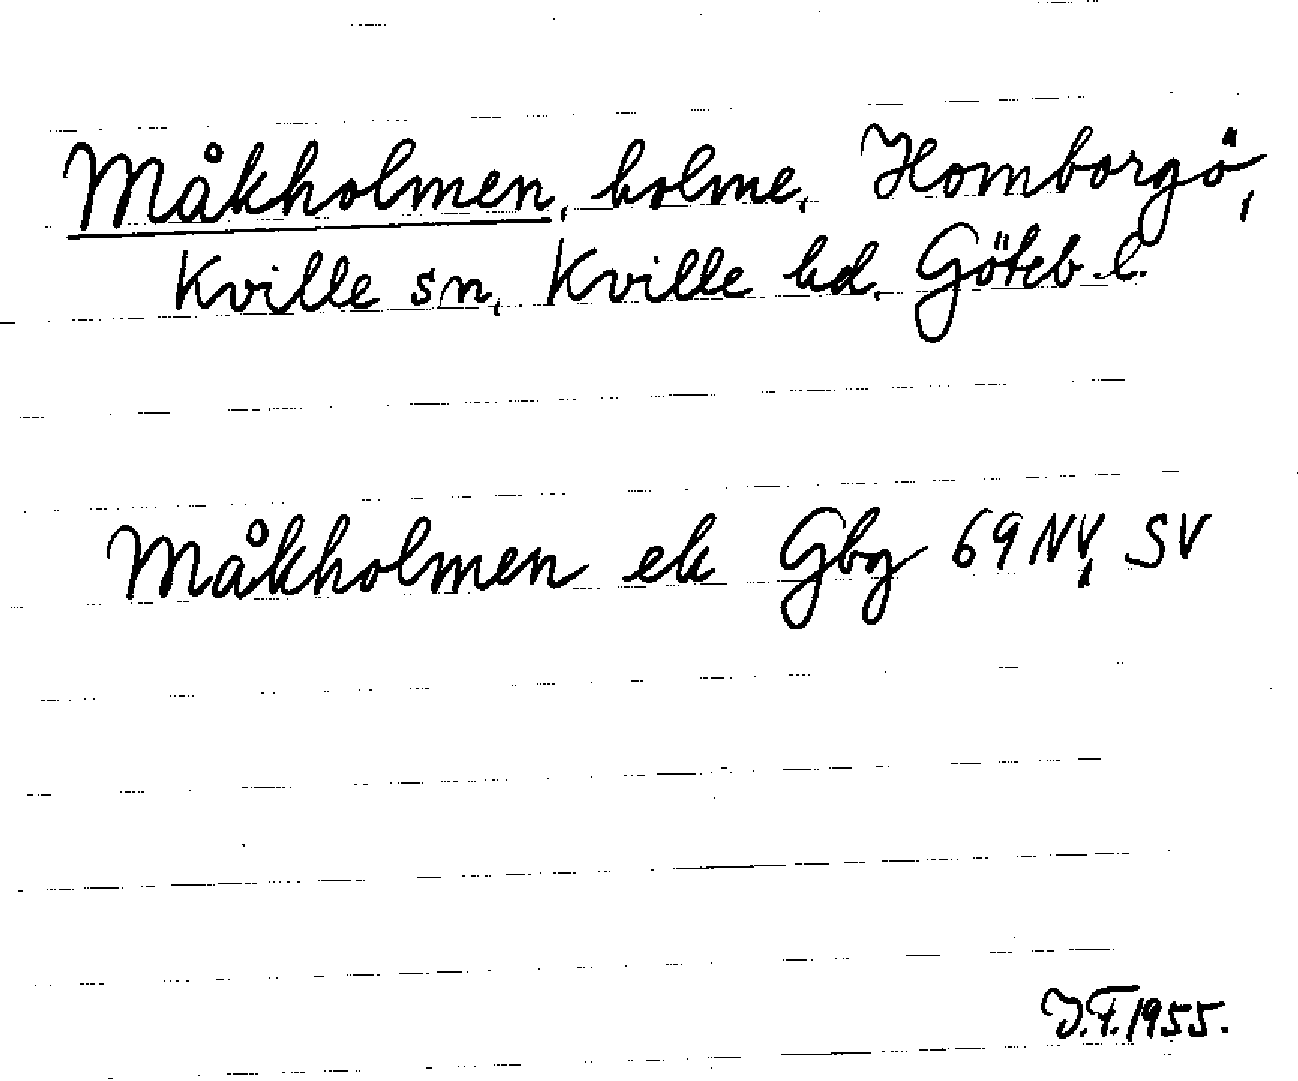 Måkholmen, holme, Homborgö,
Kville sn, Kville hd, Göteb. l.
Måkholmen ek Gbg 69 NV, SV
J.F. 1955.